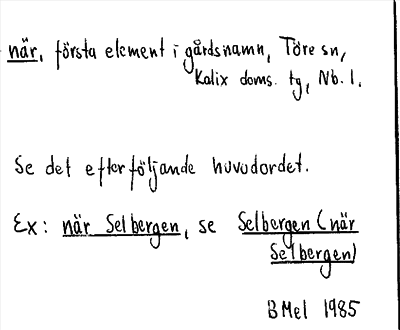 när, första element i gårdsnamn, Töre sn,
Kalix doms. tg, Nb. l.
Se det efterföljande huvudordet.
Ex: när Selbergen, se Selbergen (när
Selbergen)
BMel 1985